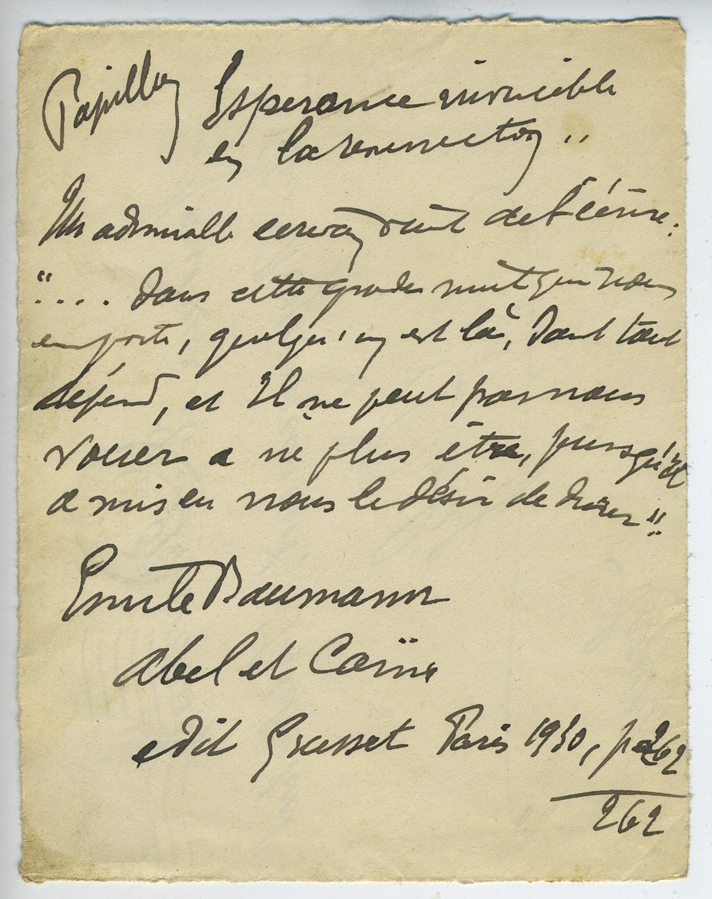 Papillon Esperance invincible
en la résurrection ..
Un admirable écrivain vient de l'écrire:
".... Dans cette grande nuit qui nous
emporte, quelqu'un est là, dont tout
dépend, et Il ne peut pas nous
vouer a ne plus être, puisqu'il
a mis en nous le désir de durer"
Emile Baumann
Abel et Caïn
edit Grasset Paris 1930, p 262
262